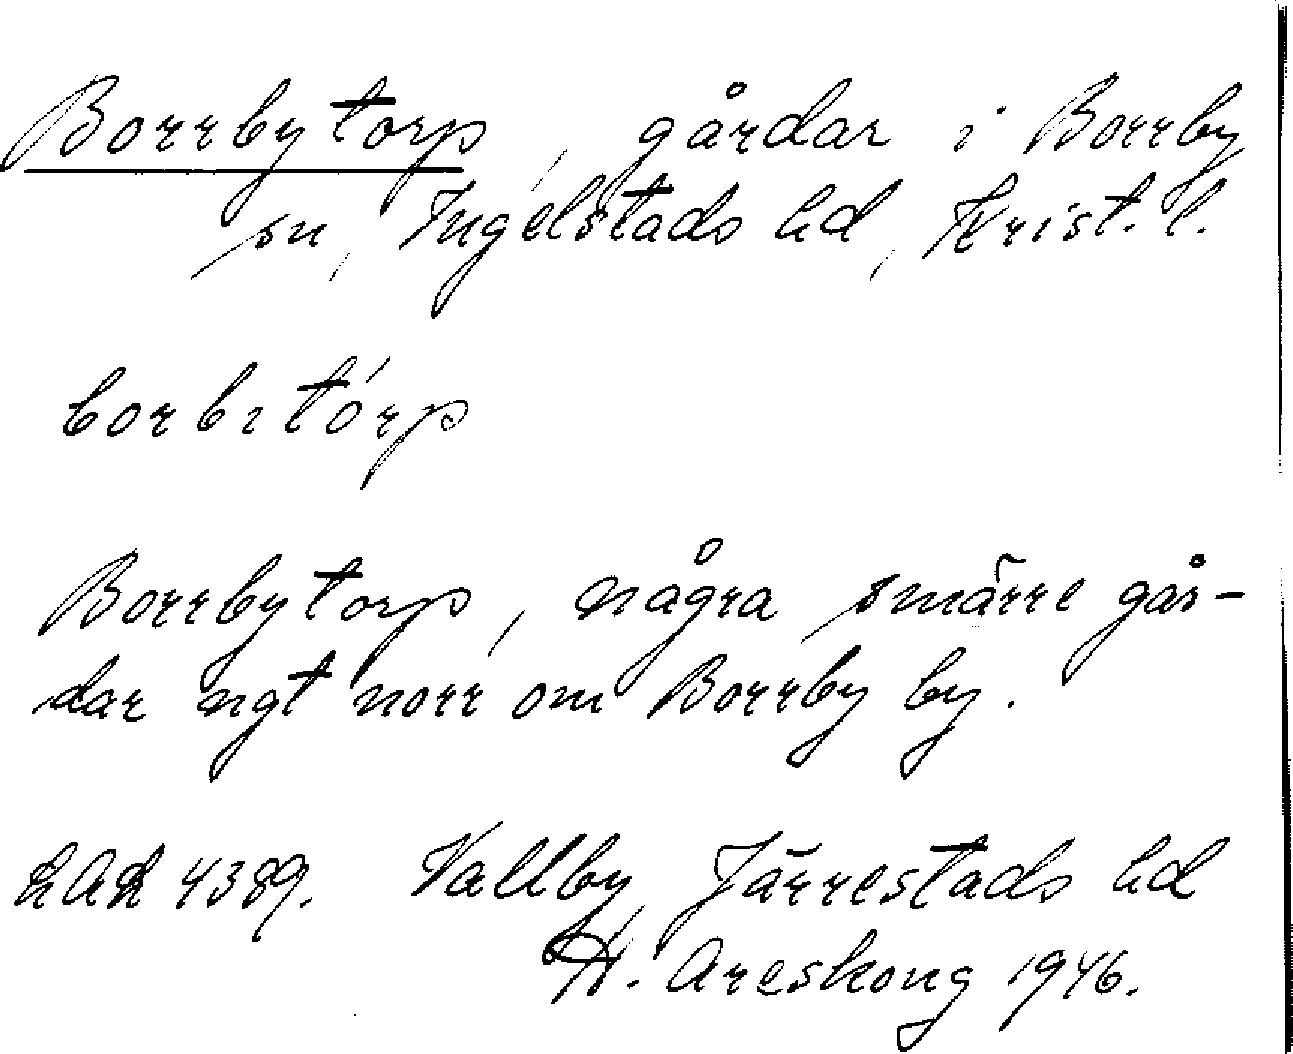 Borrbytorp, gårdar i Borrby
sn, Ingelstads hd, Krist. l.
borbɩtórp
Borrbytorp, några smärre går-
dar ngt norr om Borrby by.
4389. Vallby, Järrestads hd
H. Areskoug 1946.